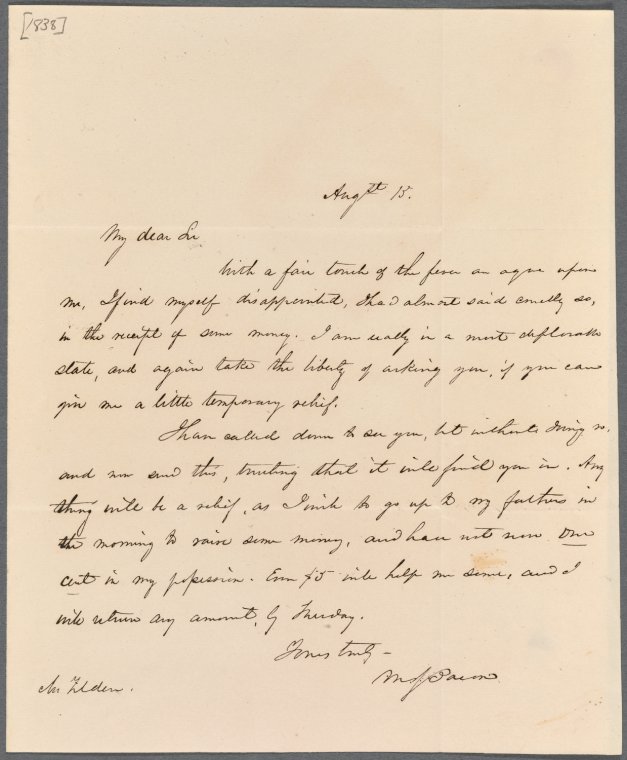 [1838]
Augst 15.
My dear Sir
With a fair touch of the fever an ague upon
me, I find myself disappointed, I had almost said cruelly so,
in the receipt of some money. I am really in a most deplorable
state, and again take the liberty of asking you, if you can
give me a little temporary relief.
I have called down to see you, but without doing so,
and now send this, trusting that it will find you in. Any
thing will be a relief, as I wish to go up to my fathers in
the morning to raise some money, and have not now One
cent in my possession. Even $5 will help me some, and I
will return any amount, by Thursday.
Yours truly -
Mr Tilden.